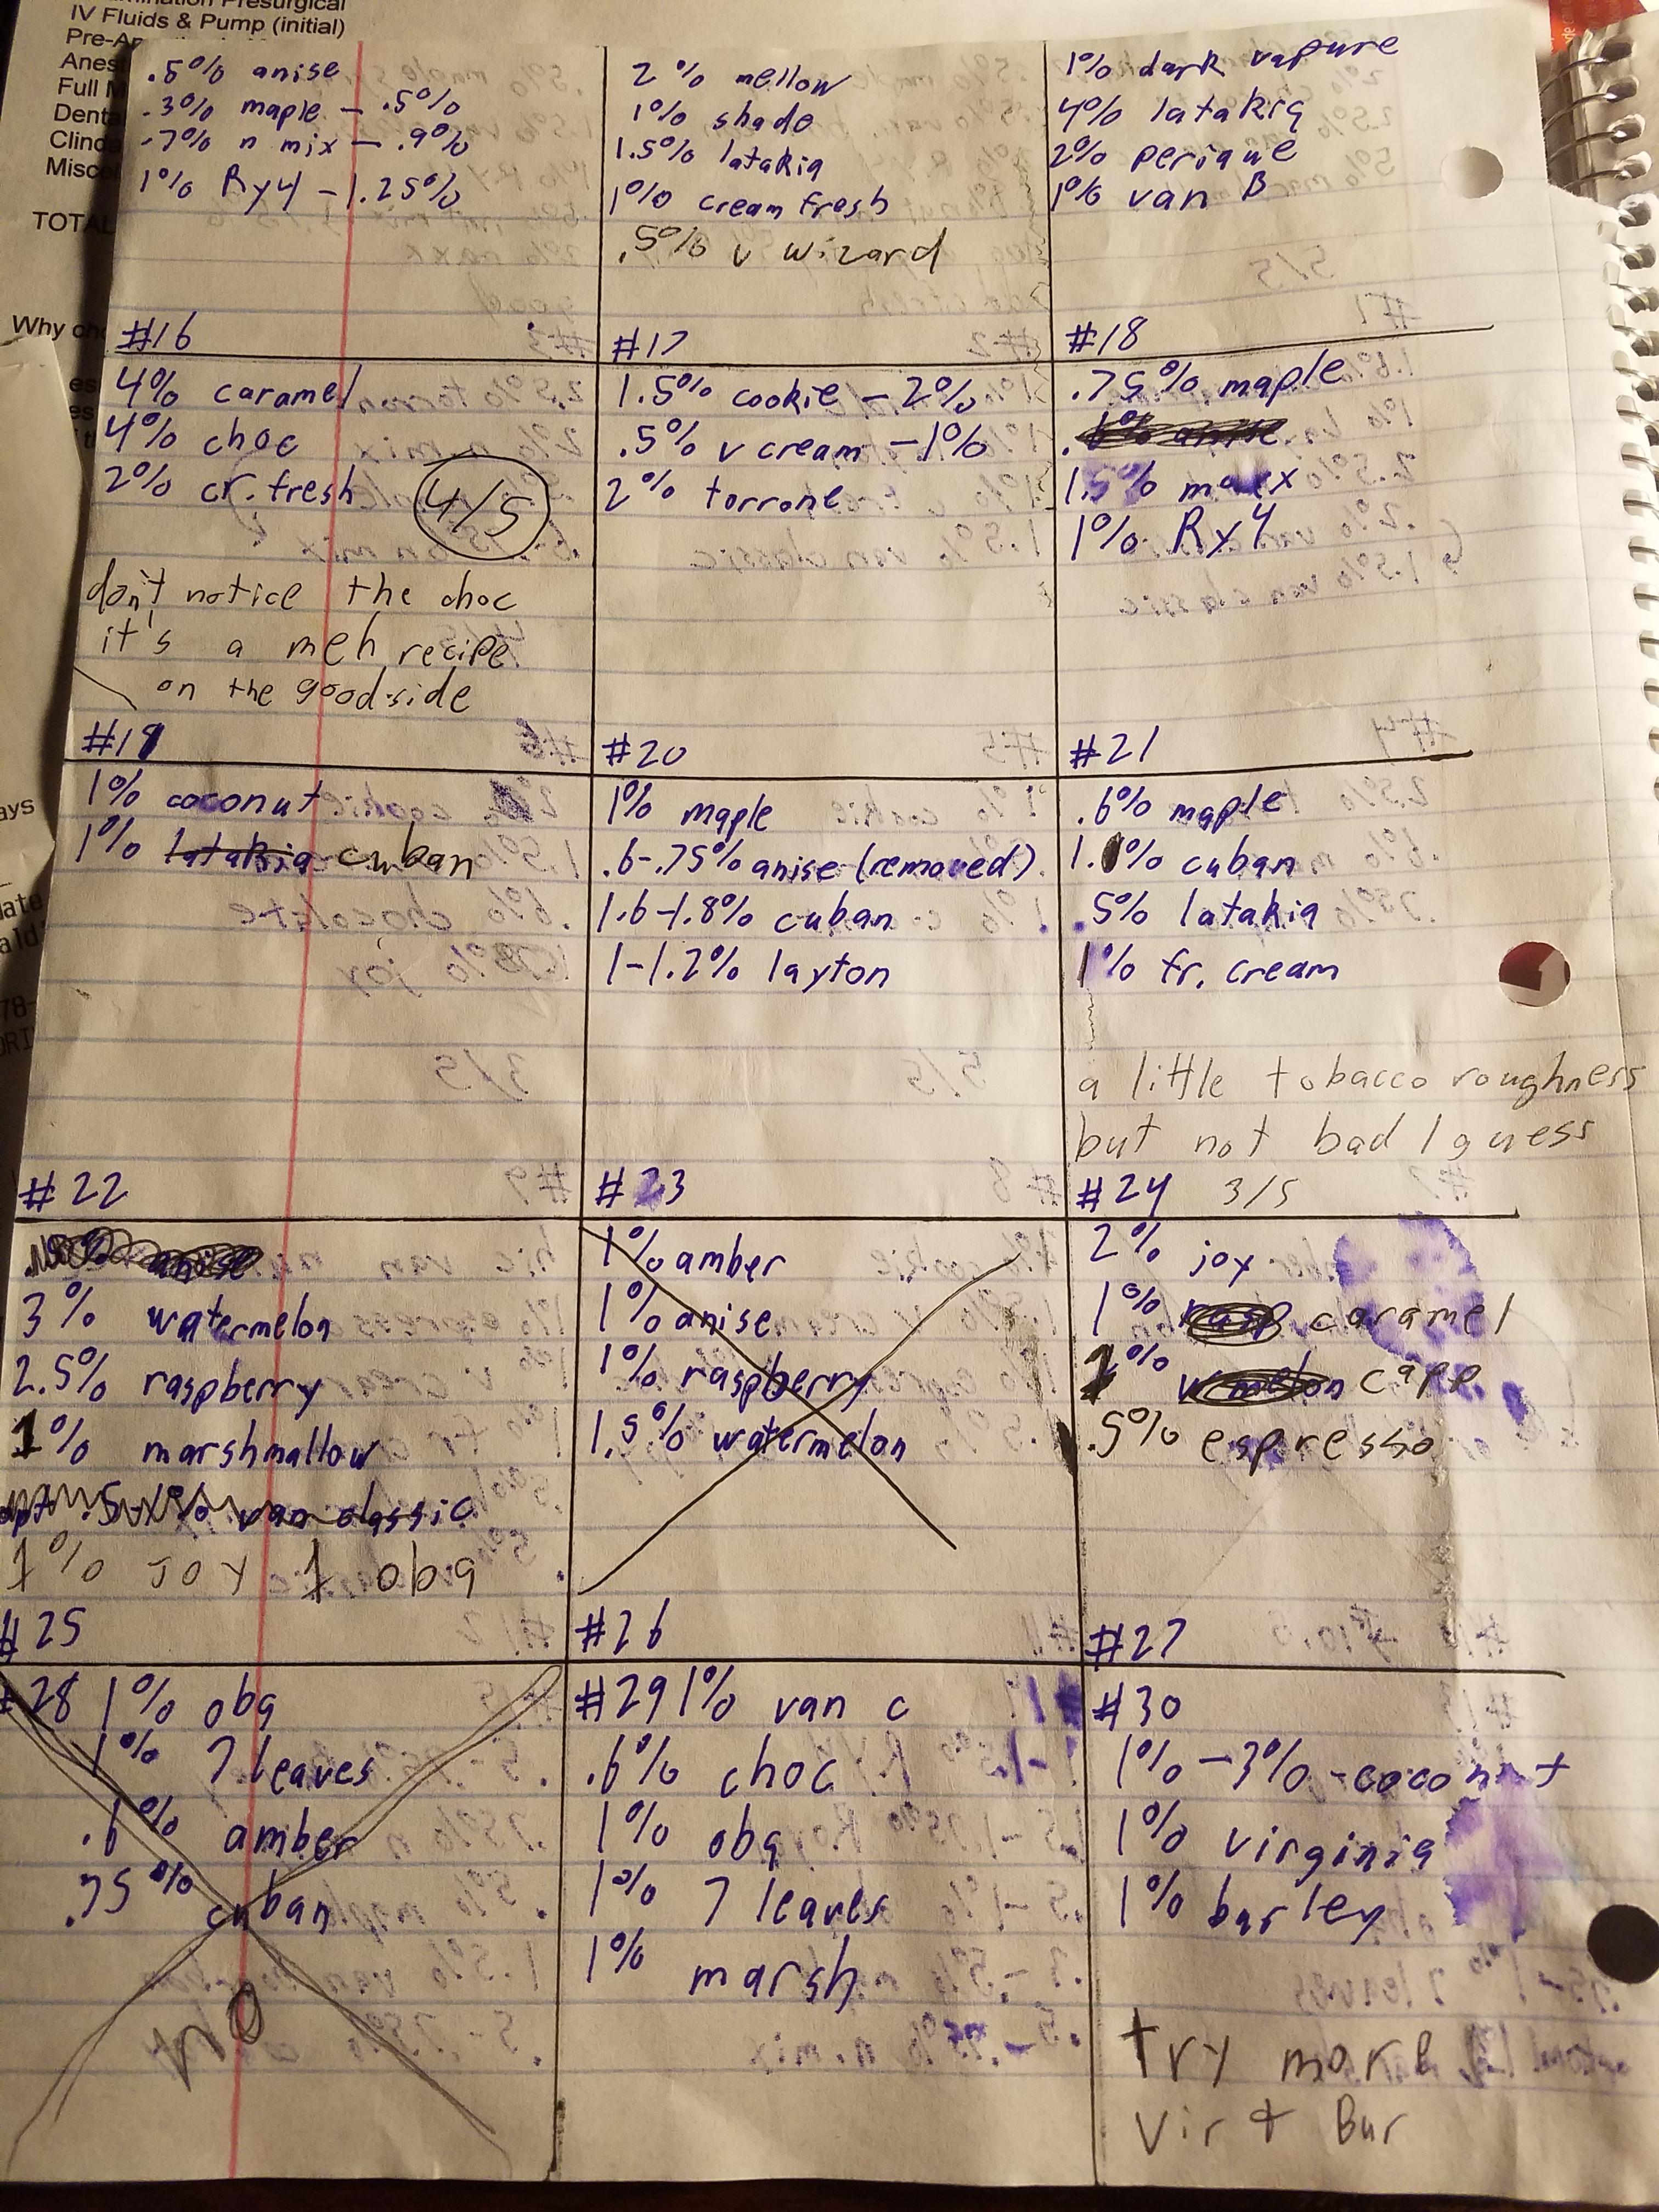 IV Fluids & Pump (initial)
TOTAL
.5% anise
.3% maple - .5%
.7% n mix - .9%
1% Ry4 - 1.25%
#16
2% mellow
1% shade
1.5% latakia
1% cream fresh
.5% v wizard
#17
1% dark vapure
4% latakia
2% perique
1% van B
#18
4% caramel
4% choc
2% cr. fresh
4/5
don't notice the choc
it's a meh recipe
on the good side
#19
1.5% cookie - 2%
.5% v cream - 1%
2% torrone
#20
.75% maple
1.5% maxx
1% Ry4
#21
1% coconut
1% latakia cuban
#22
1% maple
.6-.75% anise (removed)
1.6-1.8% cuban
1-1.2% layton
#23
.6% maple
1.0% cuban
.5% latakia
1% fr. cream
a little tobacco roughness
but not bad I guess
#24 3/5
3% watermelon
2.5% raspberry
1% marshmallow
van classic
1% joy 1 oba
#25
1% amber
1% anise
1% raspberry
1.5% watermelon
#26
2% joy
1% caramel
1% capp
.5% espresso
#27
#28 1% oba
1% 7 leaves
.6% amber
.75% cuban
NO
#29 1% van c
.6% choc
1% oba
1% 7 leaves
1% marsh
#30
1% - 3% - coconut
1% virginia
1% burley
try more
Vir + Bur